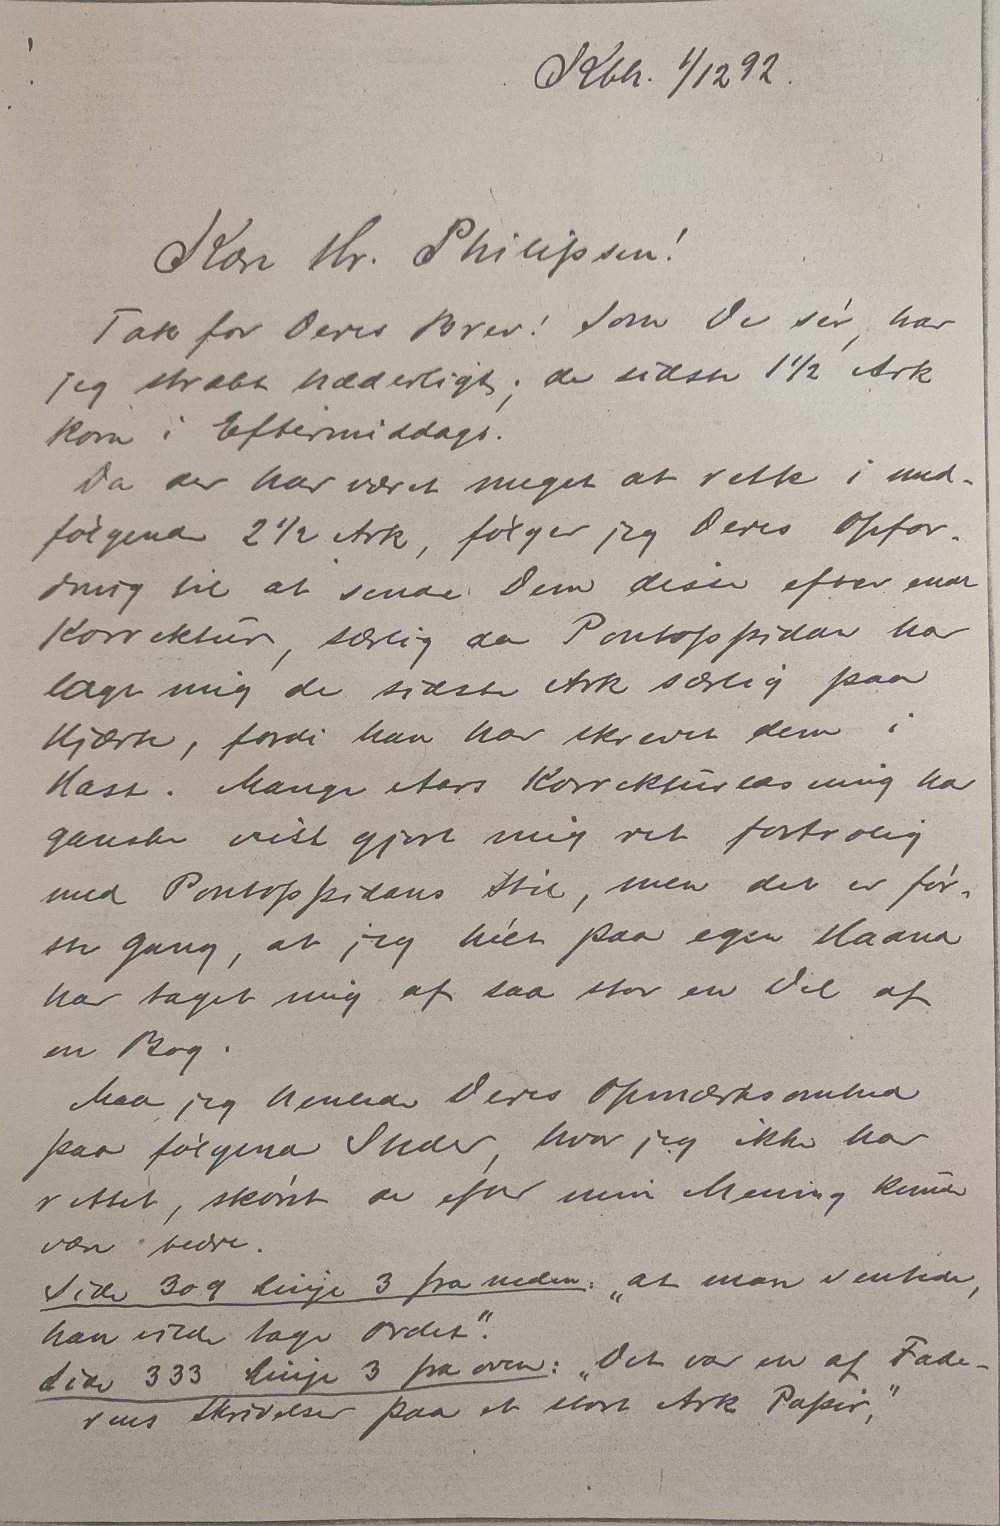 Kbh. 1/12 92.
Kære Hr. Philipsen!
Tak for Deres Brev! Som De sér, har
jeg stræbt hæderligt; de sidste 1 1/2 Ark
kom i Eftermiddags.
Da der har været meget at rette i med-
følgende 2 1/2 Ark, følger jeg Deres Opfor-
dring til at sende Dem disse efter endt
Korrektur, særlig da Pontoppidan har
lagt mig de sidste Ark særlig paa
Hjærte, fordi han har skrevet dem i
Hast. Mange Aars Korrekturlæsning har
ganske vist gjort mig ret fortrolig
med Pontoppidans Stil, men det er før-
ste Gang, at jeg hélt paa egen Haand
har taget mig af saa stor en Del af
en Bog.
Maa jeg henlede Deres Opmærksomhed
paa følgende Steder, hvor jeg ikke har
rettet, skønt de efter min Mening kunde
være bedre.
Side 309 Linje 3 fra neden: „at man ventede,
han vilde tage Ordet“.
Side 333 Linje 3 fra oven: „Det var en af Fade-
rens Skrivelser paa et stort Ark Papir,“